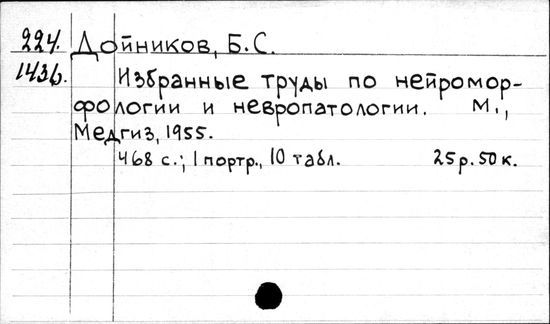 224. Дойников, Б.С.
1436. Избранные труды по нейромор-
фологии и невропатологии. М.,
Медгиз, 1955.
468 с.; 1 портр., 10 табл. 25 р. 50 к.